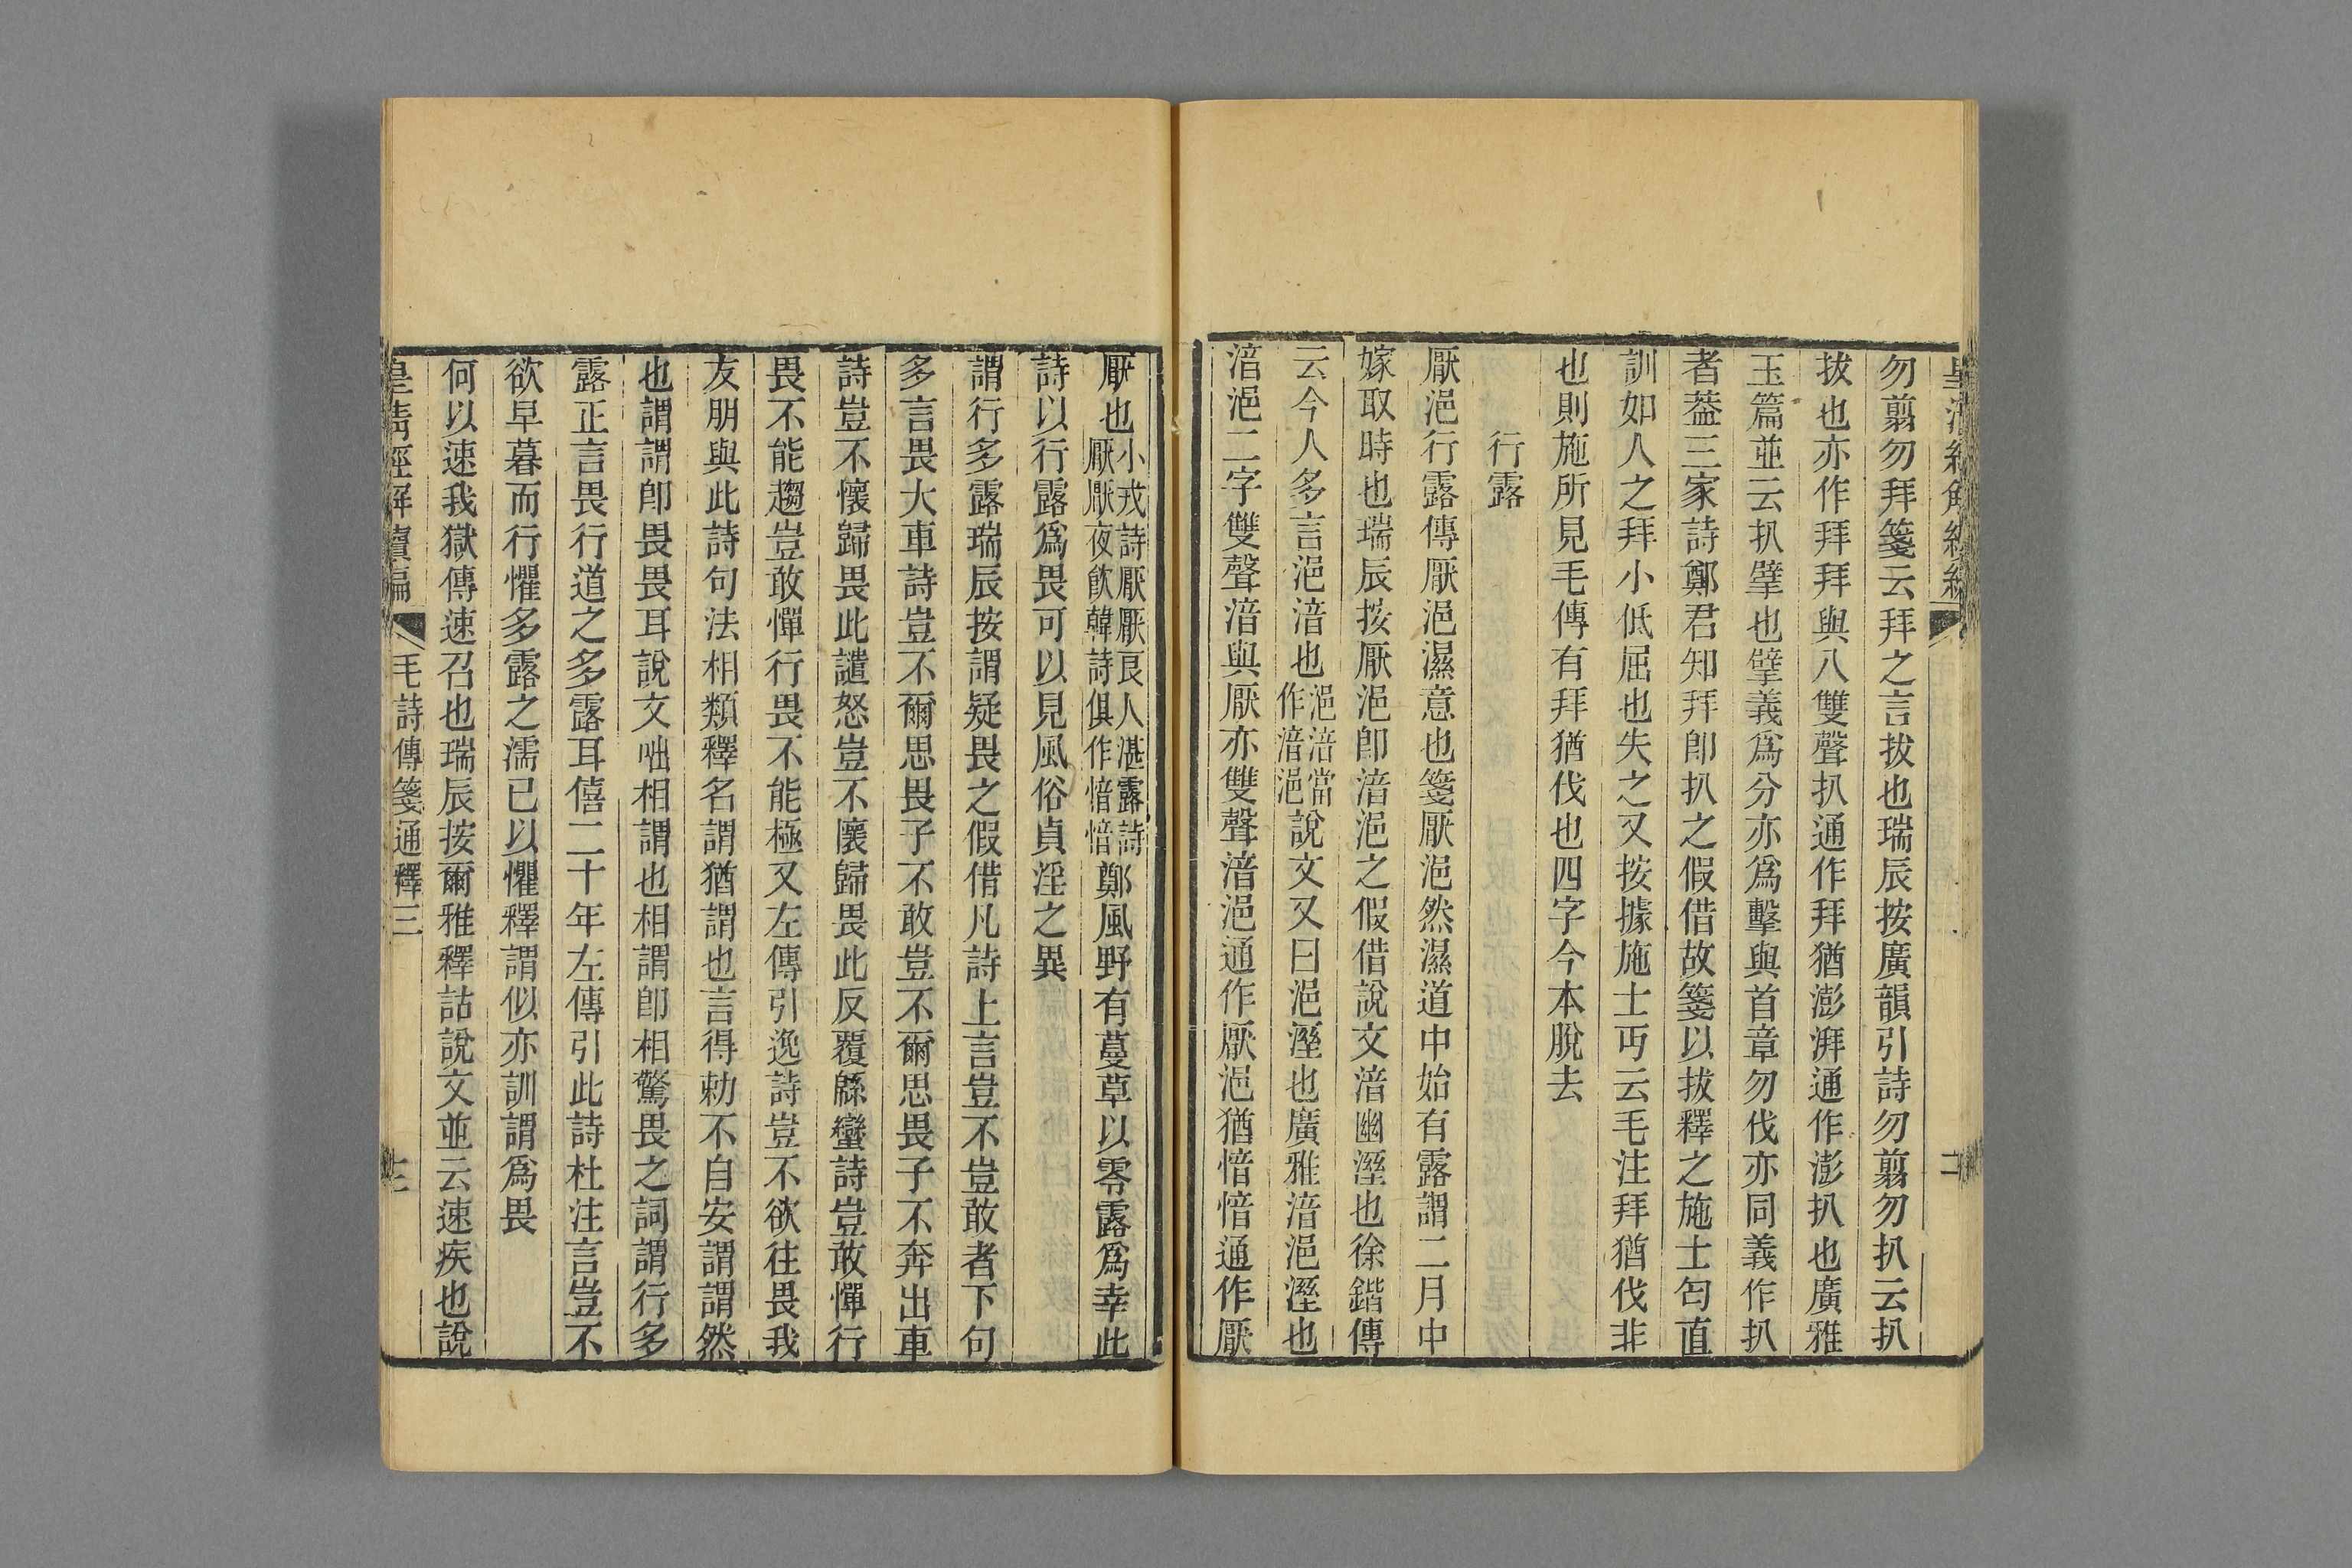 勿翦勿拜箋云拜之言拔也瑞辰按廣韻引詩勿翦勿扒云扒
拔也亦作拜拜與八雙聲扒通作拜猶澎湃通作澎扒也廣雅
玉篇並云扒擘也擘義爲分亦爲擊與首章勿伐亦同義作扒
者葢三家詩鄭君知拜卽扒之假借故箋以拔釋之施士匄直
訓如人之拜小低屈也失之又按據施士丐云毛注拜猶伐非
也則施所見毛傳有拜猶伐也四字今本脫去
行露
厭浥行露傳厭浥濕意也箋厭浥然濕道中始有露謂二月中
嫁取時也瑞辰按厭浥卽湆浥之假借說文湆幽溼也徐鍇傳
云今人多言浥湆也浥湆當作湆浥說文又曰浥溼也廣雅湆浥溼也
湆浥二字雙聲湆與厭亦雙聲湆浥通作厭浥猶愔愔通作厭
厭也小戎詩厭厭良人湛露詩厭厭夜飮韓詩俱作愔愔鄭風野有蔓草以零露爲幸此
詩以行露爲畏可以見風俗貞淫之異
謂行多露瑞辰按謂疑畏之假借凡詩上言豈不豈敢者下句
多言畏大車詩豈不爾思畏子不敢豈不爾思畏子不奔出車
詩豈不懷歸畏此譴怒豈不懷歸畏此反覆緜蠻詩豈敢憚行
畏不能趨豈敢憚行畏不能極又左傳引逸詩豈不欲往畏我
友朋與此詩句法相類釋名謂猶謂也言得勅不自安謂謂然
也謂謂卽畏畏耳說文咄相謂也相謂卽相驚畏之詞謂行多
露正言畏行道之多露耳僖二十年左傳引此詩杜注言豈不
欲早暮而行懼多露之濡已以懼釋謂似亦訓謂爲畏
何以速我獄傳速召也瑞辰按爾雅釋詁說文並云速疾也說
皇淸經解續編 毛詩傳箋通釋三